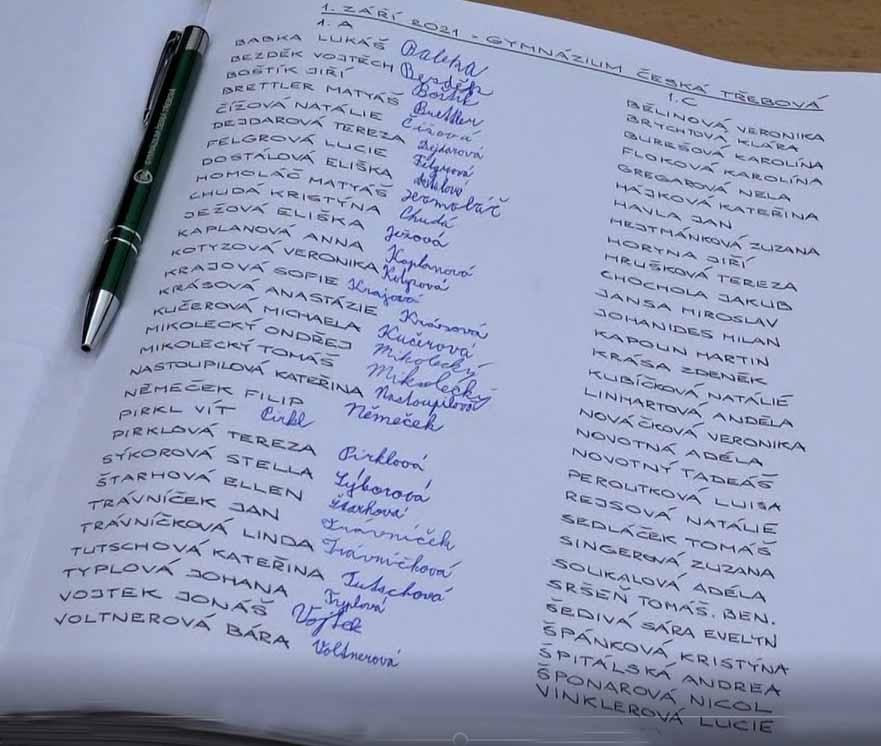 1. ZÁŘÍ 2021 - GYMNÁZIUM ČESKÁ TŘEBOVÁ
1. A
BABKA LUKÁŠ Babka
BEZDĚK VOJTĚCH Bezděk
BOŠTÍK JIŘÍ Boštík
BRETTLER MATYÁŠ Brettler
ČÍŽOVÁ NATÁLIE Čížová
DEJDAROVÁ TEREZA Dejdarová
FELGROVÁ LUCIE Felgrová
DOSTÁLOVÁ ELIŠKA Dostálová
HOMOLÁČ MATYÁŠ Homoláč
CHUDÁ KRISTÝNA Chudá
JEŽOVÁ ELIŠKA Ježová
KAPLANOVÁ ANNA Kaplanová
KOTYZOVÁ VERONIKA Kotyzová
KRAJOVÁ SOFIE Krajová
KRÁSOVÁ ANASTÁZIE Krásová
KUČEROVÁ MICHAELA Kučerová
MIKOLECKÝ ONDŘEJ Mikolecký
MIKOLECKÝ TOMÁŠ Mikolecký
NASTOUPILOVÁ KATEŘINA Nastoupilová
NĚMEČEK FILIP Němeček
PIRKL VÍT Pirkl
PIRKLOVÁ TEREZA Pirklová
SÝKOROVÁ STELLA Sýkorová
ŠTARHOVÁ ELLEN Štarhová
TRÁVNÍČEK JAN Trávníček
TRÁVNÍČKOVÁ LINDA Trávníčková
TUTSCHOVÁ KATEŘINA Tutschová
TYPLOVÁ JOHANA Typlová
VOJTEK JONÁŠ Vojtek
VOLTNEROVÁ BÁRA Voltnerová
1. C
BĚLINOVÁ VERONIKA
BRYCHTOVÁ KLÁRA
BUREŠOVÁ KAROLÍNA
FLOKOVÁ KAROLÍNA
GREGAROVÁ NELA
HÁJKOVÁ KATEŘINA
HAVLA JAN
HEJTMÁNKOVÁ ZUZANA
HORYNA JIŘÍ
HRUŠKOVÁ TEREZA
CHOCHOLA JAKUB
JANSA MIROSLAV
JOHANIDES MILAN
KAPOUN MARTIN
KRÁSA ZDENĚK
KUBÍČKOVÁ NATÁLIE
LINHARTOVÁ ANDĚLA
NOVÁČKOVÁ VERONIKA
NOVOTNÁ ADÉLA
NOVOTNÝ TADEÁŠ
PEROUTKOVÁ LUISA
REJSOVÁ NATÁLIE
SEDLÁČEK TOMÁŠ
SINGEROVÁ ZUZANA
SOUKALOVÁ ADÉLA
SRŠEŇ TOMÁŠ. BEN.
ŠEDIVÁ SÁRA EVELYN
ŠPÁNKOVÁ KRISTÝNA
ŠPITÁLSKÁ ANDREA
ŠPONAROVÁ NICOL
VINKLEROVÁ LUCIE